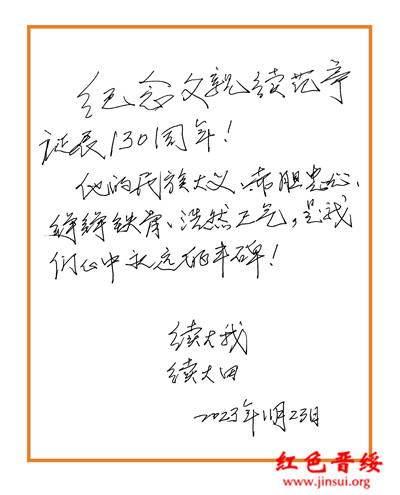 纪念父亲续范亭
诞辰130周年!
他的民族大义、赤胆忠心、
铮铮铁骨、浩然正气,是我
们心中永远的丰碑!
续大我
续大田
2023年11月23日
红色晋绥
www.jinsui.org